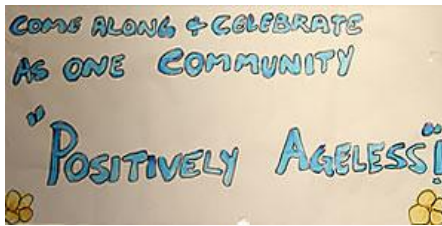 COME ALONG & CELEBRATE
AS ONE COMMUNITY
"POSITIVELY AGELESS"!